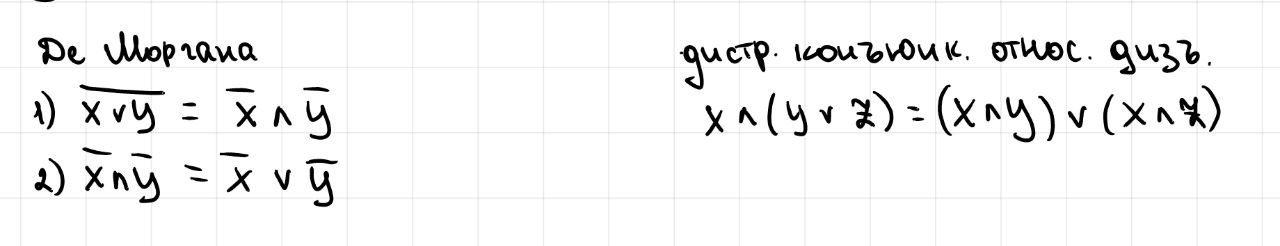 Де Моргана
1) \overline{x ∨ y} = x̄ ∧ ȳ
2) x̄ ∧ ȳ = x̄ ∨ ȳ
дистр. конъюнк. относ. дизъ.
x ∧ (y ∨ z) = (x ∧ y) ∨ (x ∧ z)